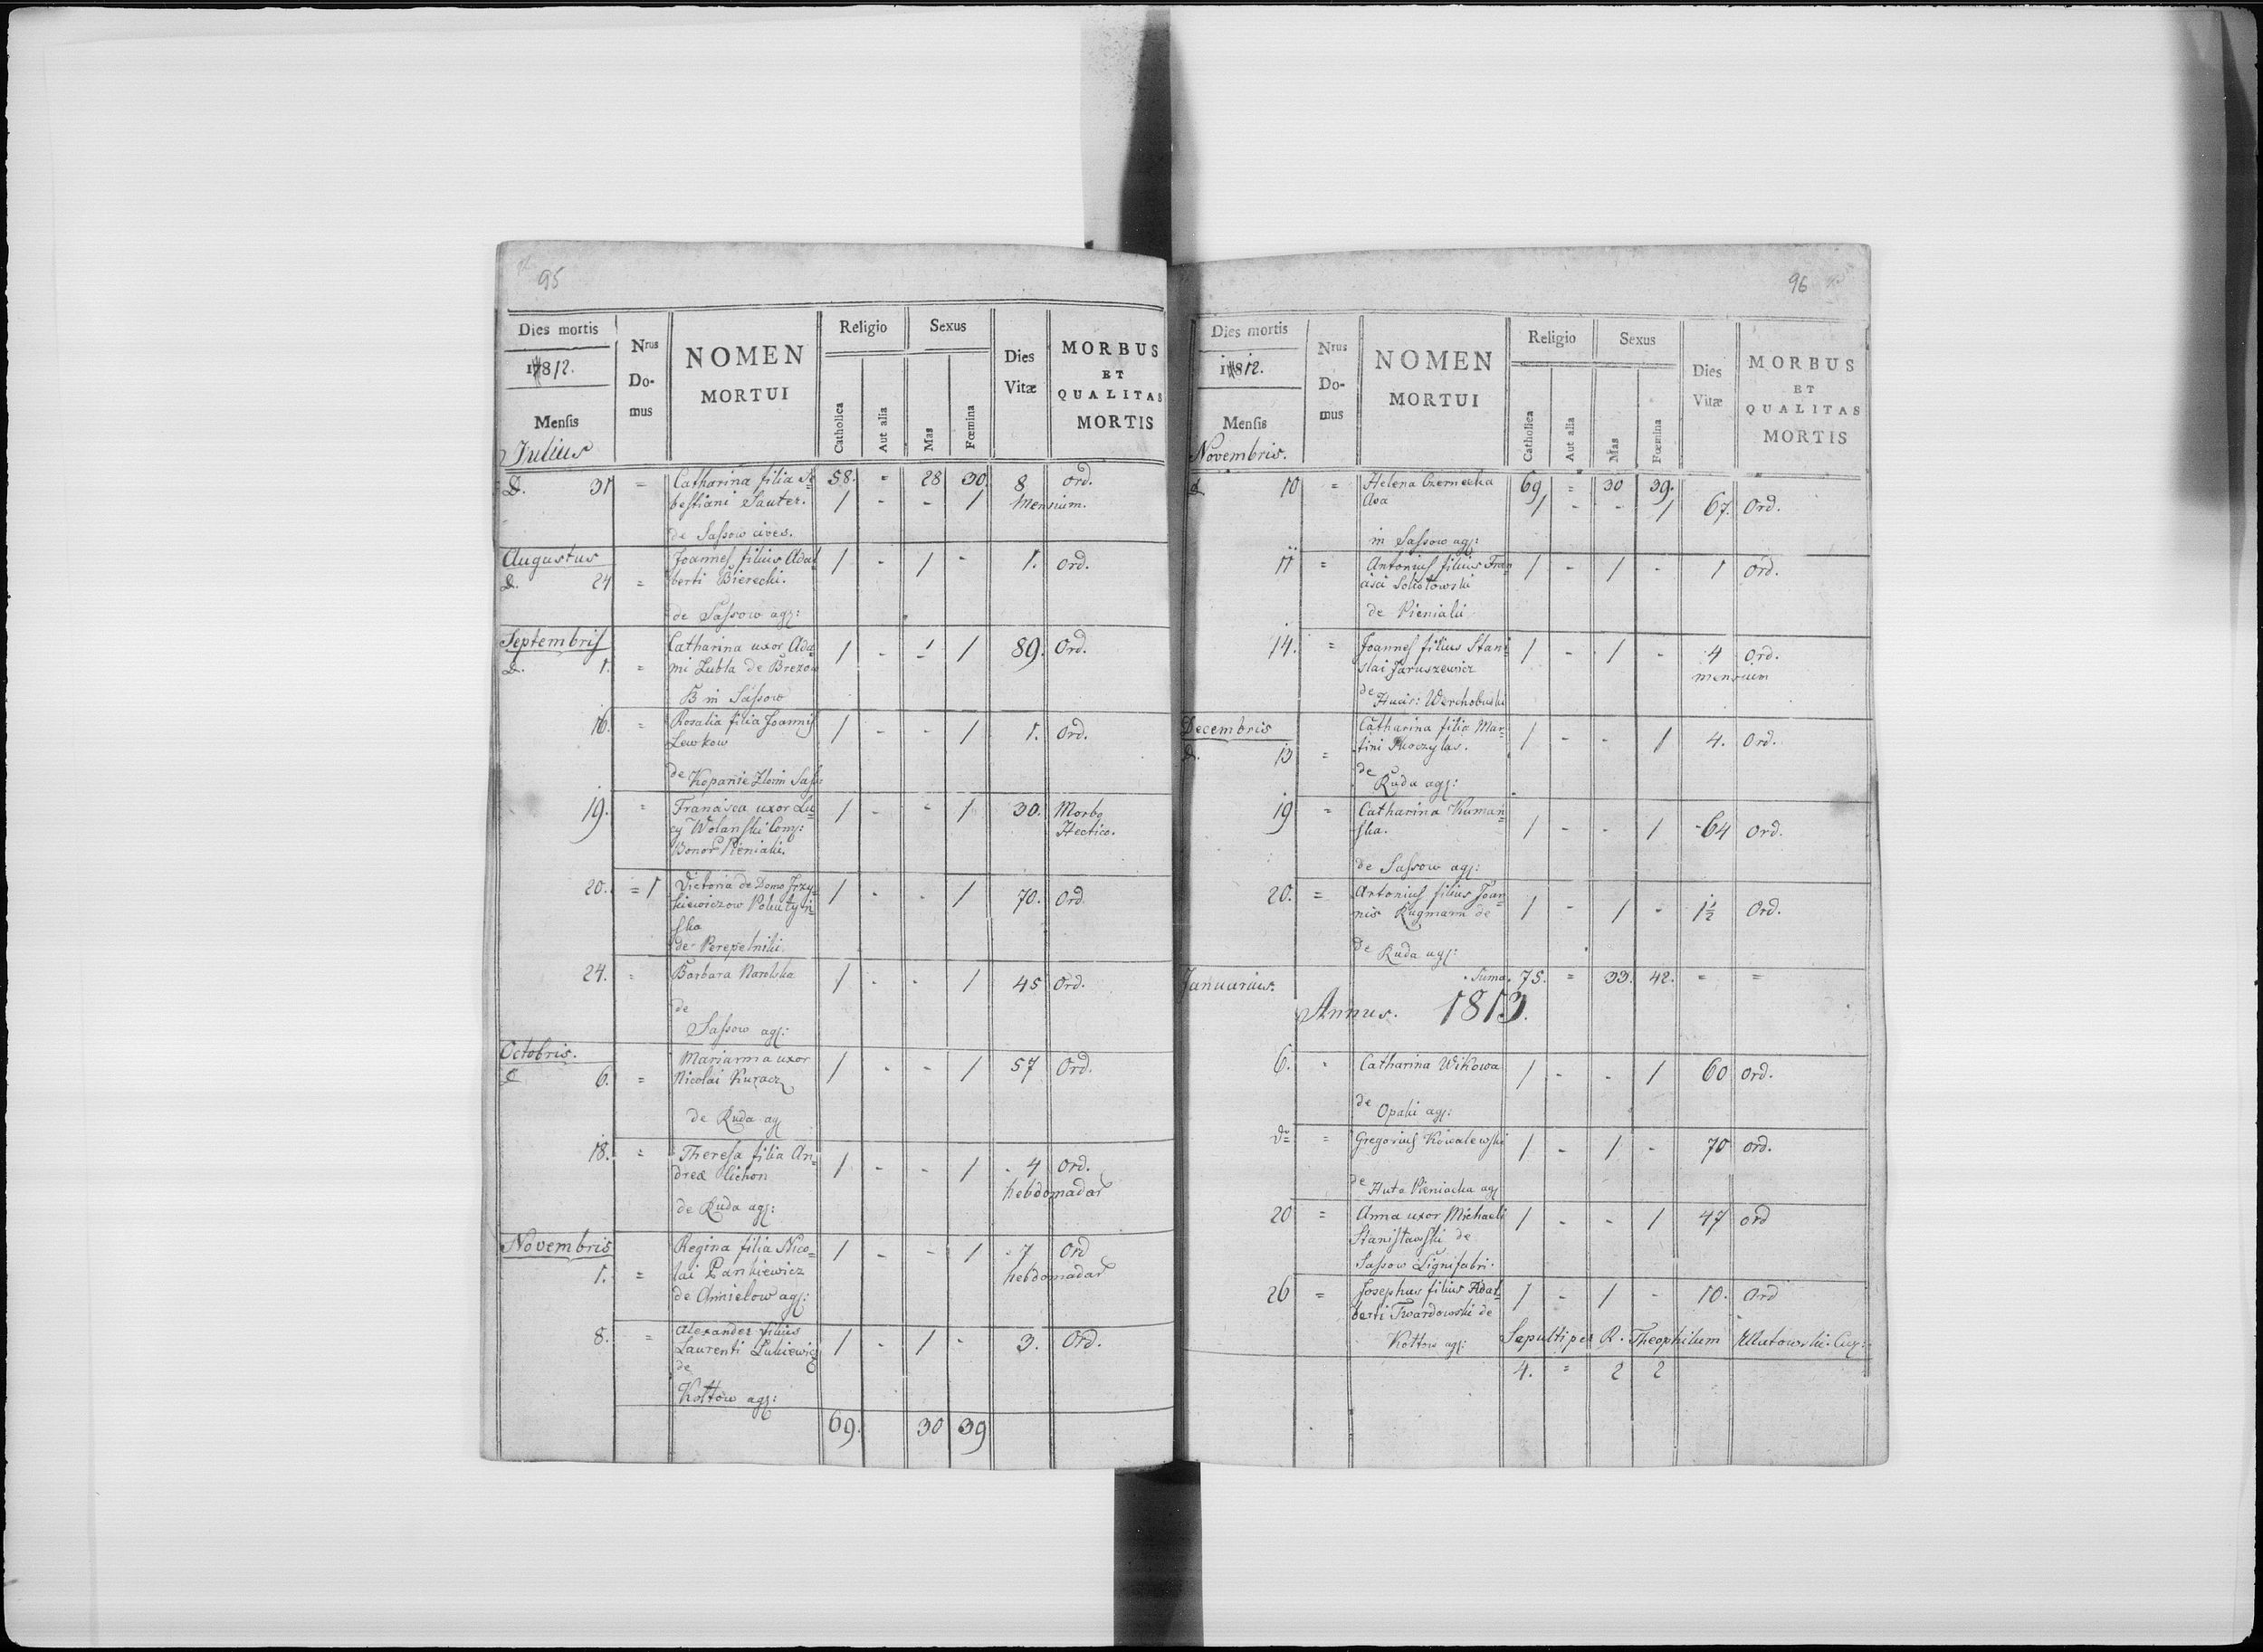 95
Dies mortis
1812.
Mensis
Julius
Nrus Do-mus
NOMEN MORTUI
Religio
Catholica
Aut alia
Sexus
Mas
Fœmina
Dies Vitæ
MORBUS ET QUALITAS MORTIS
58. = 28 30.
D. 31 = Catharina filia Se= 1 - - 1 8 ord.
bestiani Sauter. Mensium.
de Sassow cives.
Augustus
D. 24 = Joannes filius Adal= 1 - 1 - 1. ord.
berti Bierecki.
de Sassow agr:
Septembris
D. 1. = Catharina uxor Ada= 1 - 1 89. Ord.
mi Lubla de Brezow
B in Sassow
16. = Rosalia filia Joannis 1 - - 1 1. Ord.
Lewkow
de Kopanie Sass:
19. = Francisca uxor Lu= 1 - - 1 30. Morbo
cy Wolanski Hectico.
Bonor Pieniaki.
20. = 1 Victoria de Domo 1 - - 1 70. Ord
ska
de Perepelniki.
24. = Barbara Narolska 1 - - 1 45 Ord.
de
Sassow agr:
Octobris.
D 6. = Marianna uxor 1 - - 1 57 Ord.
Nicolai Kuracz
de Ruda agr
18. = Theresa filia An= 1 - - 1 4 Ord.
dreæ Cichon hebdomadar
de Ruda agr:
Novembris
1. = Regina filia Nico= 1 - - 1 7 Ord
lai Pankiewicz hebdomadar
de agr:
8. = Alexander filius 1 - 1 - 3. Ord.
Laurenti Lukiewicz
de
Kottow agr:
69. 30 39
96
Dies mortis
1812.
Mensis
Novembris.
Nrus Do-mus
NOMEN MORTUI
Religio
Catholica
Aut alia
Sexus
Mas
Fœmina
Dies Vitæ
MORBUS ET QUALITAS MORTIS
69 = 30 39.
d 10 = Helena Czernecka 1 - - 1 67. Ord.
in Sassow agr:
11 = Antonius filius Fran 1 - 1 - 1 Ord.
cisci Sokolowski
de Pieniaki
14. = Joannes filius Stani= 1 - 1 - 4 Ord.
slai Jaruszewicz mensium
de Hucis: Werchobuski
Decembris
d. 13 = Catharina filia Mar= 1 - - 1 4. Ord.
tini
de
Ruda agr:
19 = Catharina Kuman= 1 - - 1 64 Ord.
ska.
de Sassow agr:
20. = Antonius filius Joan= 1 - 1 - 1½ Ord.
nis Rugmann de
de Ruda agr:
Januarius. Suma. 75. = 33. 42. = =
Annus. 1813.
6. = Catharina Wikowa 1 - - 1 60 Ord.
de Opaki agr:
= Gregorius Kowalewski 1 - 1 - 70 ord.
de Huta Pieniacka agr
20 = Anna uxor Michaeli 1 - - 1 47 ord
Stanisławski de
Sassow Lignifabri.
26 = Josephus filius Adal= 1 - 1 - 10. Ord
berti Twardowski de
Kottow agr: Sepulti per R. Theophilum
4. = 2 2